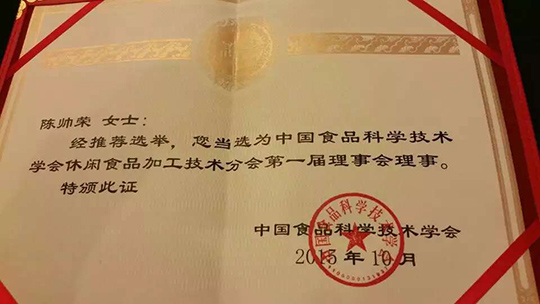 陈帅荣 女士：
经推荐选举，您当选为中国食品科学技术
学会休闲食品加工技术分会第一届理事会理事。
特颁此证
中国食品科学技术学会
2015 年 10 月
中国食品科学技术学会